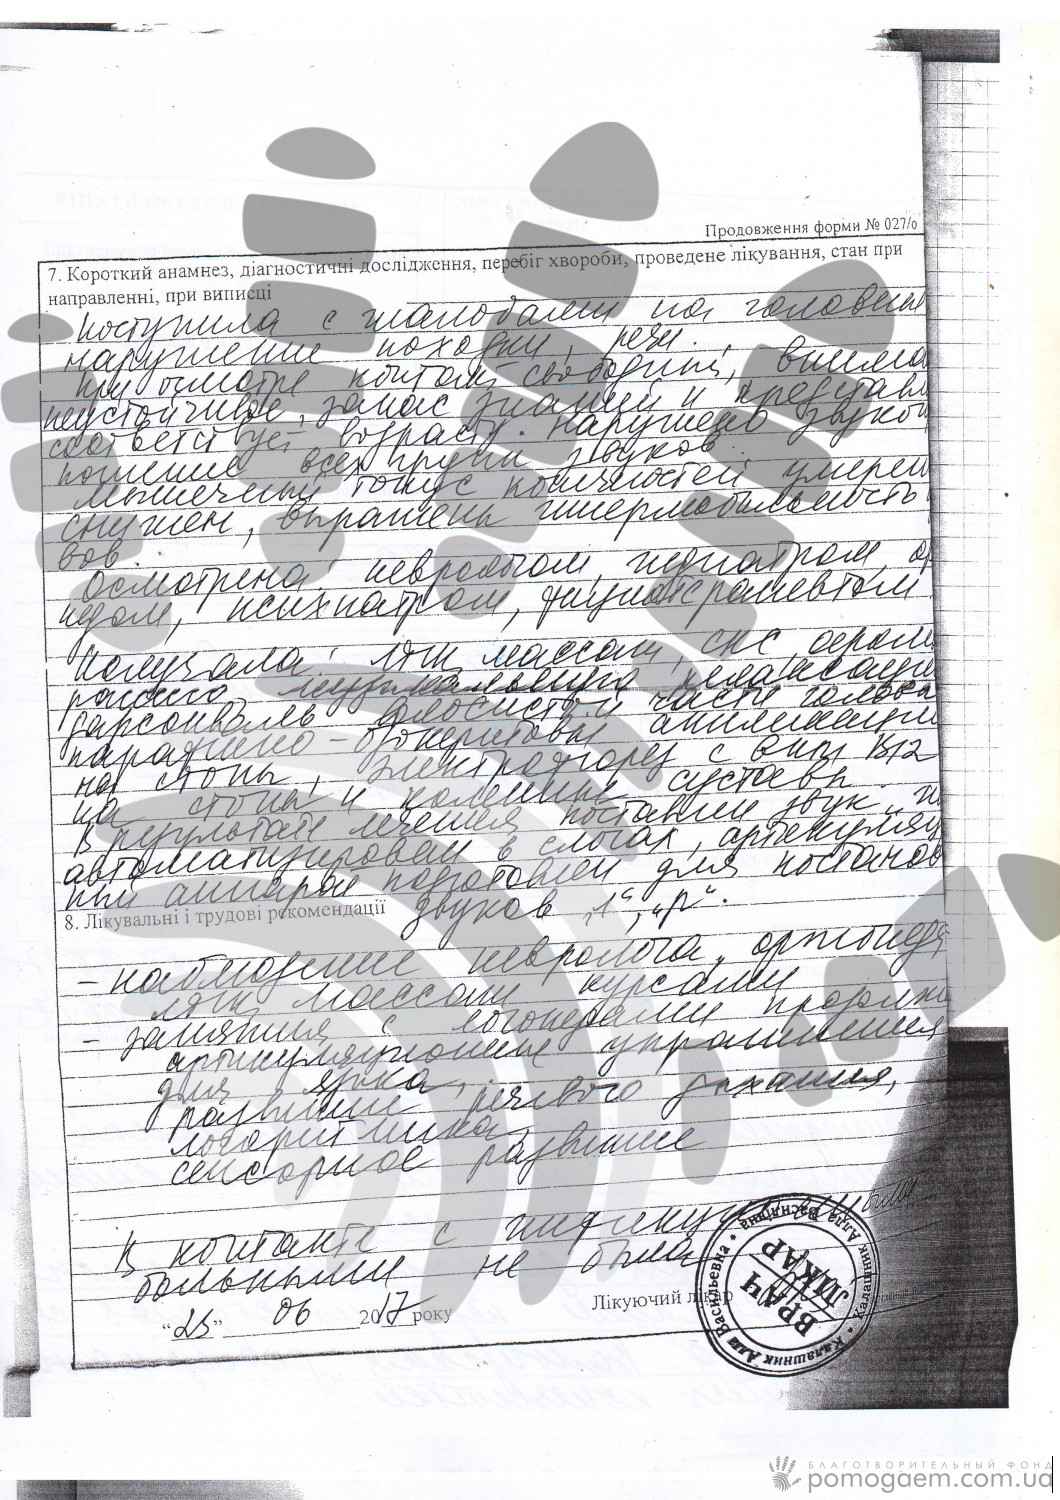 Продовження форми № 027/о
7. Короткий анамнез, діагностичні дослідження, перебіг хвороби, проведене лікування, стан при
направленні, при виписці
Поступила с жалобами на головные
нарушение походки, речи.
При осмотре контакт свободный, внима
неустойчивое, запас знаний и представл
соответствует возрасту. Нарушено звукоп
ношение всех групп звуков.
Мышечный тонус конечностей умерен
снижен, выражена гипермобильность
вов
Осмотрена: неврологом, педиатром, ор
педом, психиатром, физиотерапевтом.
Получала: ЛФК, массаж,
дарсонваль волосистой части головы
парафино-озокеритовые аппликации
на стопы, электрофорез с вит B12
на стопы и коленные суставы.
В результате лечения поставлен звук
автоматизирован в слогах, артикуляц
ный аппарат подготовлен для постанов
звуков „л“, „р“.
8. Лікувальні і трудові рекомендації
- наблюдение невролога, ортопеда
ЛФК, массаж курсами
- занятия с логопедами продолжа
артикуляционные упражнения
для языка,
развитие речевого дыхания,
логоритмика,
сенсорное развитие
В контакте с инфекционными
больными не была
“23” 06 2017 року
Лікуючий лікар
ВРАЧ
ЛІКАР
Калашник Алла Васильевна • Калашник Алла Василівна •
БЛАГОТВОРИТЕЛЬНЫЙ ФОНД
pomogaem.com.ua